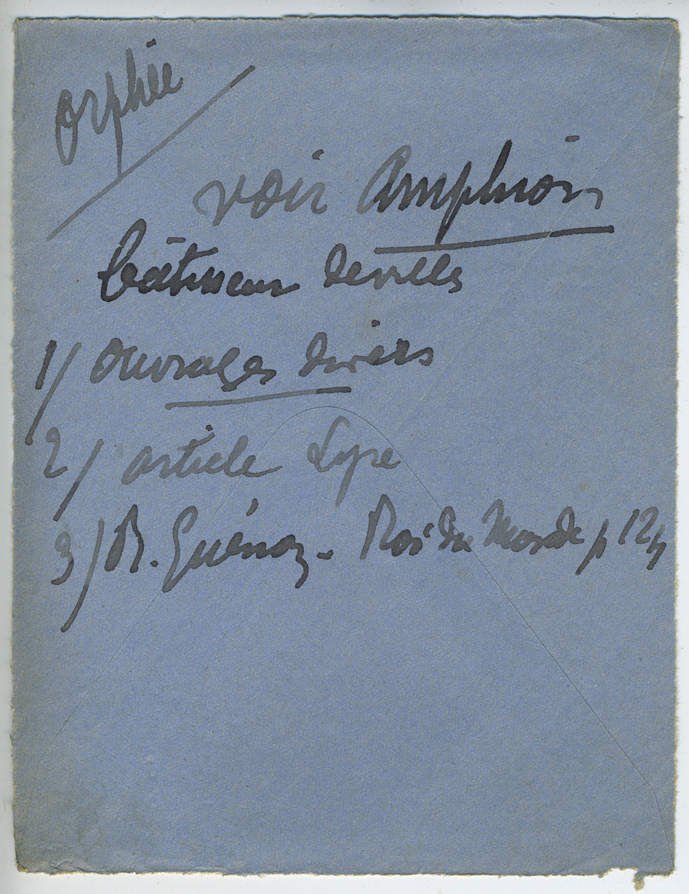 Orphée
voir Amphion
bâtisseur de villes
1/ Ouvrages divers
2/ article Lyre
3/ R. Guénon - Roi du Monde p